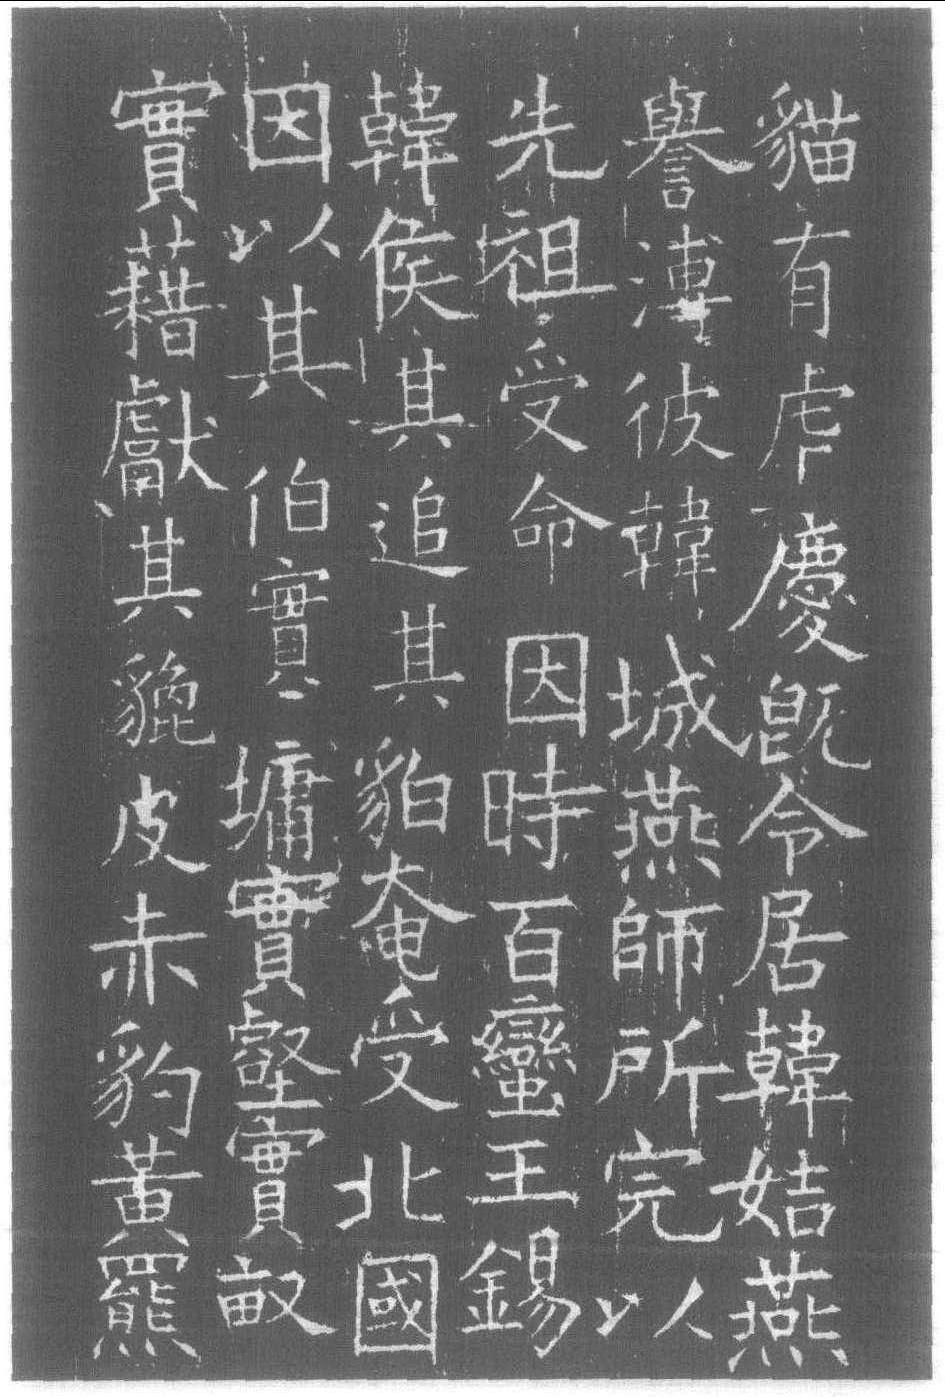 貓有虎慶既令居韓姞燕
譽溥彼韓城燕師所完以
先祖受命因時百蠻王錫
韓侯其追其貊奄受北國
因以其伯實墉實壑實畝
實藉獻其貔皮赤豹黃羆